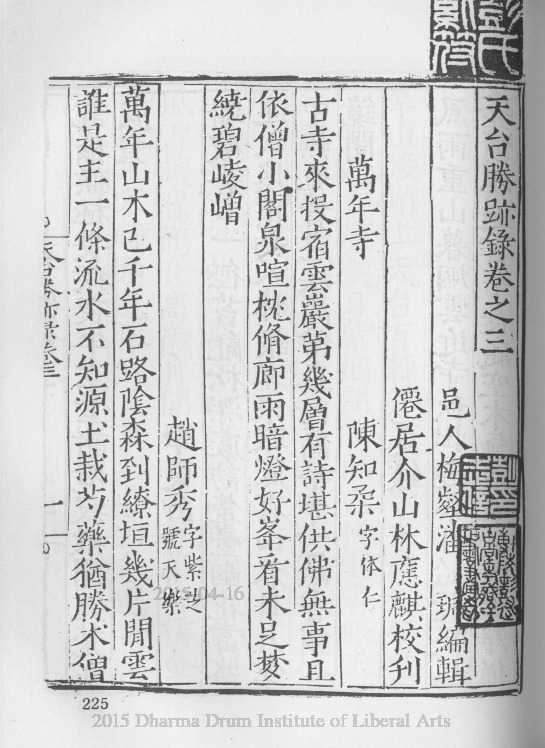 天台勝跡錄卷之三
邑人梅壑潘 編輯
僊居介山林應麒校刋
萬年寺 陳知柔字依仁
古寺來投宿雲巖苐幾層有詩堪供佛無事且
依僧小閣泉喧枕脩廊雨暗燈好峯看未足夢
繞碧崚嶒
趙師秀字紫芝號天樂
萬年山木已千年石路陰森到繚垣幾片閒雲
誰是主一條流水不知源土栽芍藥猶勝木僧
天台勝亦彔卷三 一
225
2015-04-16
2015 Dharma Drum Institute of Liberal Arts